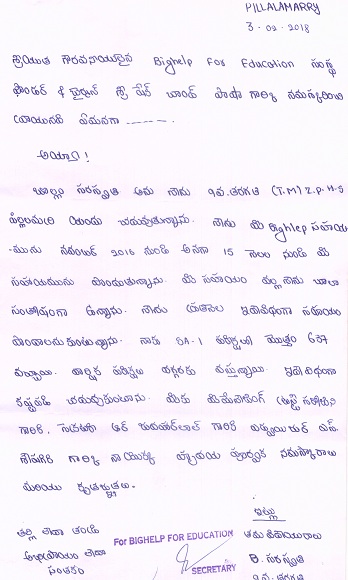 PILLALAMARRY
3-02-2018
శ్రీయుత గౌరవనీయులైన Bighelp For Education సంస్థ
ఫౌండర్ & ఛైర్మన్ శ్రీ షేక్ చాంద్ పాషా గారికి నమస్కరించి
వ్రాయునది ఏమనగా
అయ్యా!
సరస్వతి అను నేను 9వ తరగతి (T.M) Z.P.H.S
పిల్లలమర్రి యందు చదువుతున్నాను. నేను మీ Bighelp సహాయ
-మును నవంబర్ 2016 నుండి అనగా 15 నెలల నుండి మీ
సహాయమును పొందుతున్నాను. మీ సహాయం వల్ల నేను చాలా
సంతోషంగా ఉన్నాను. నేను ఇదేవిధంగా సహాయం
పొందాలనుకుంటున్నాను. నాకు SA-1 పరీక్షల్లో మొత్తం 637
వచ్చాయి. వార్షిక పరీక్షలు దగ్గరకు వస్తున్నాయి. ఇదేవిధంగా
కష్టపడి చదువుకుంటాను. మీకు
గారికి, గారికి
గారికి నా యొక్క హృదయ పూర్వక నమస్కారాలు
మరియు కృతజ్ఞతలు.
ఇట్లు
తల్లి లేదా తండ్రి
తమ విధేయురాలు
అభిప్రాయం లేదా
సంతకం
For BIGHELP FOR EDUCATION
SECRETARY
B. సరస్వతి
9వ తరగతి